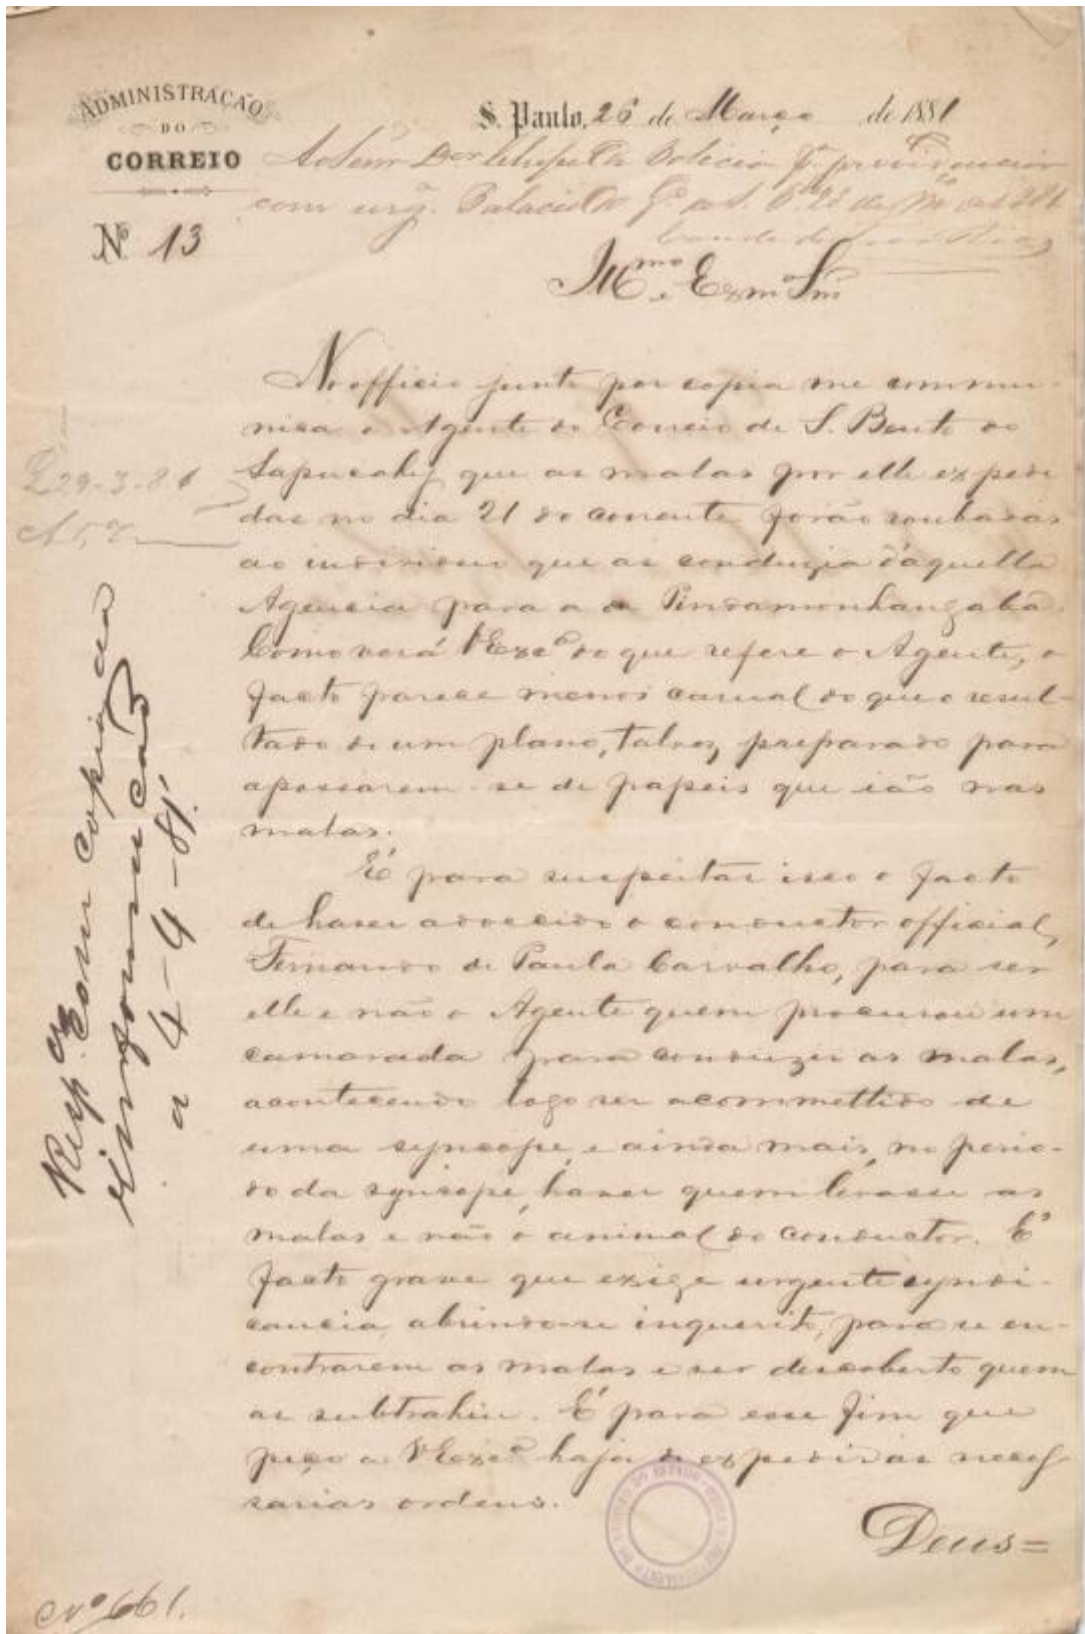 ADMINISTRAÇÃO
DO
CORREIO
Nº 13
S. Paulo, 26 de Março de 1881
Ao Senr Dor Chefe da Policia pª providenciar
com urgª. Palacio do Gº de S. Pº 28 de Mço de 1881
Illmo e Exmo Snr
No officio junto por copia me commu-
nica o Agente do Correio de S. Bento do
Sapucahy que as malas por elle expedi
das no dia 21 do corrente forão roubadas
ao individuo que as conduzia d'aquella
Agencia para a de Pindamonhangaba.
Como verá VExcª do que refere o Agente, o
facto parece menos casual do que o resul-
tado de um plano, talvez, preparado para
apossarem-se de papeis que ião nas
malas.
É para suspeitar isso o facto
de haver adoecido o conductor official,
Fernando de Paula Carvalho, para ser
elle e não o Agente quem procurou um
camarada para conduzir as malas,
acontecendo logo ser acommettido de
uma syncope, e ainda mais, no perio-
do da syncope, haver quem levasse as
malas e não o animal do conductor. É
facto grave que exige urgente syndi-
cancia, abrindo-se inquerito, para se en-
contrarem as malas e ser descoberto quem
as subtrahiu. É para esse fim que
peço a VExcª haja de expedir as neces
sarias ordens.
Deus=
29-3-81
Respdo com copia das
informações
a 4-4-81.
Nº 661.